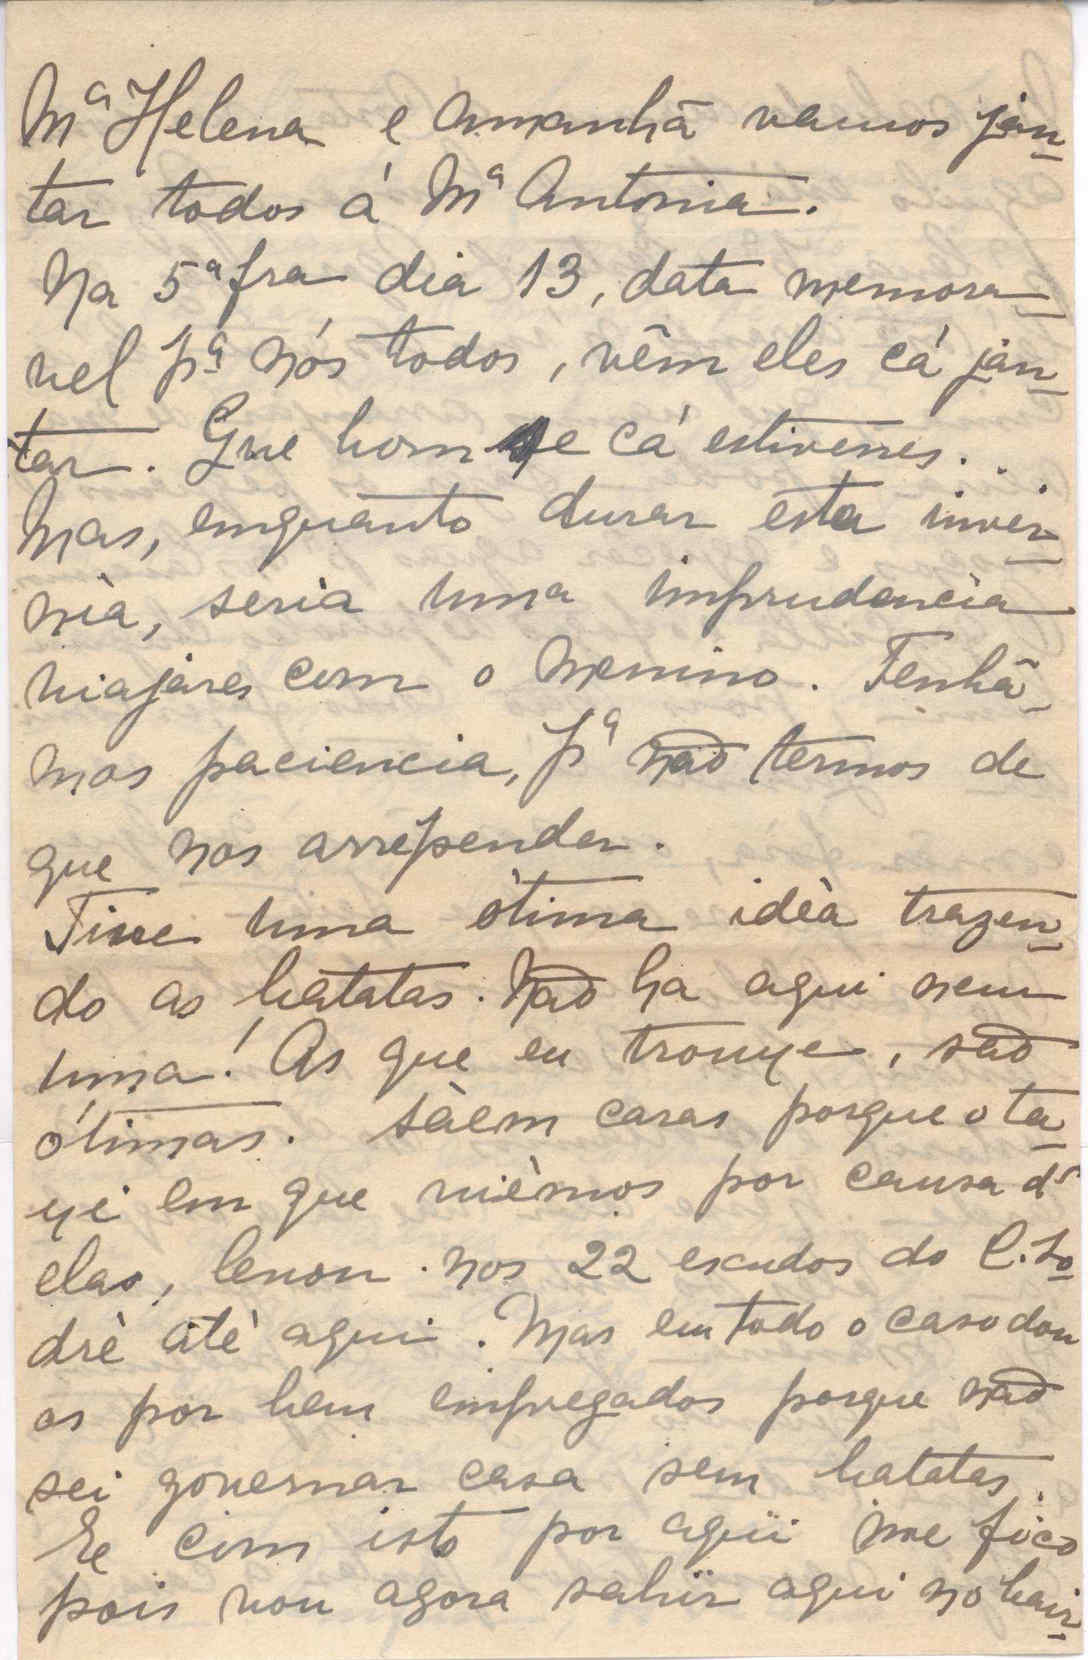 Mª Helena e amanhã vamos jan-
tar todos á Mª Antonia.
Na 5ª fra dia 13, data memora-
vel pª nós todos, vêm eles cá jan-
tar. Que bom se cá estivesses...
Mas, emquanto durar esta inver-
nia, seria uma imprudencia
viajares com o menino. Tenhã-
mos paciencia, pª não termos de
que nos arrepender.
Tive uma òtima idèa trazen-
do as batatas. Não ha aqui nem
uma! As que eu trouxe, são
ótimas. Sàem caras porque o ta-
xi em que vièmos por causa d'
elas, levou-nos 22 escudos do C. So-
drè atè aqui. Mas em todo o caso dou
os por bem empregados porque não
sei governar casa sem batatas.
E com isto por aqui me fico
pois vou agora sahir aqui no bair-